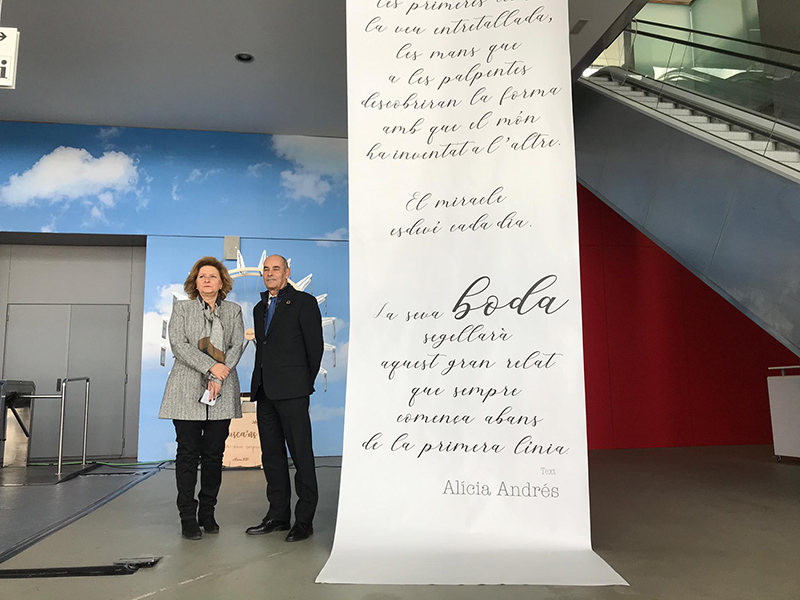 les primeres
la veu entretallada,
les mans que
a les palpentes
descobriran la forma
amb que el món
ha inventat a l'altre.
El miracle
esdevé cada dia.
La seva boda
segellarà
aquest gran relat
que sempre
comença abans
de la primera línia.
Text
Alícia Andrés
i
busca'ns